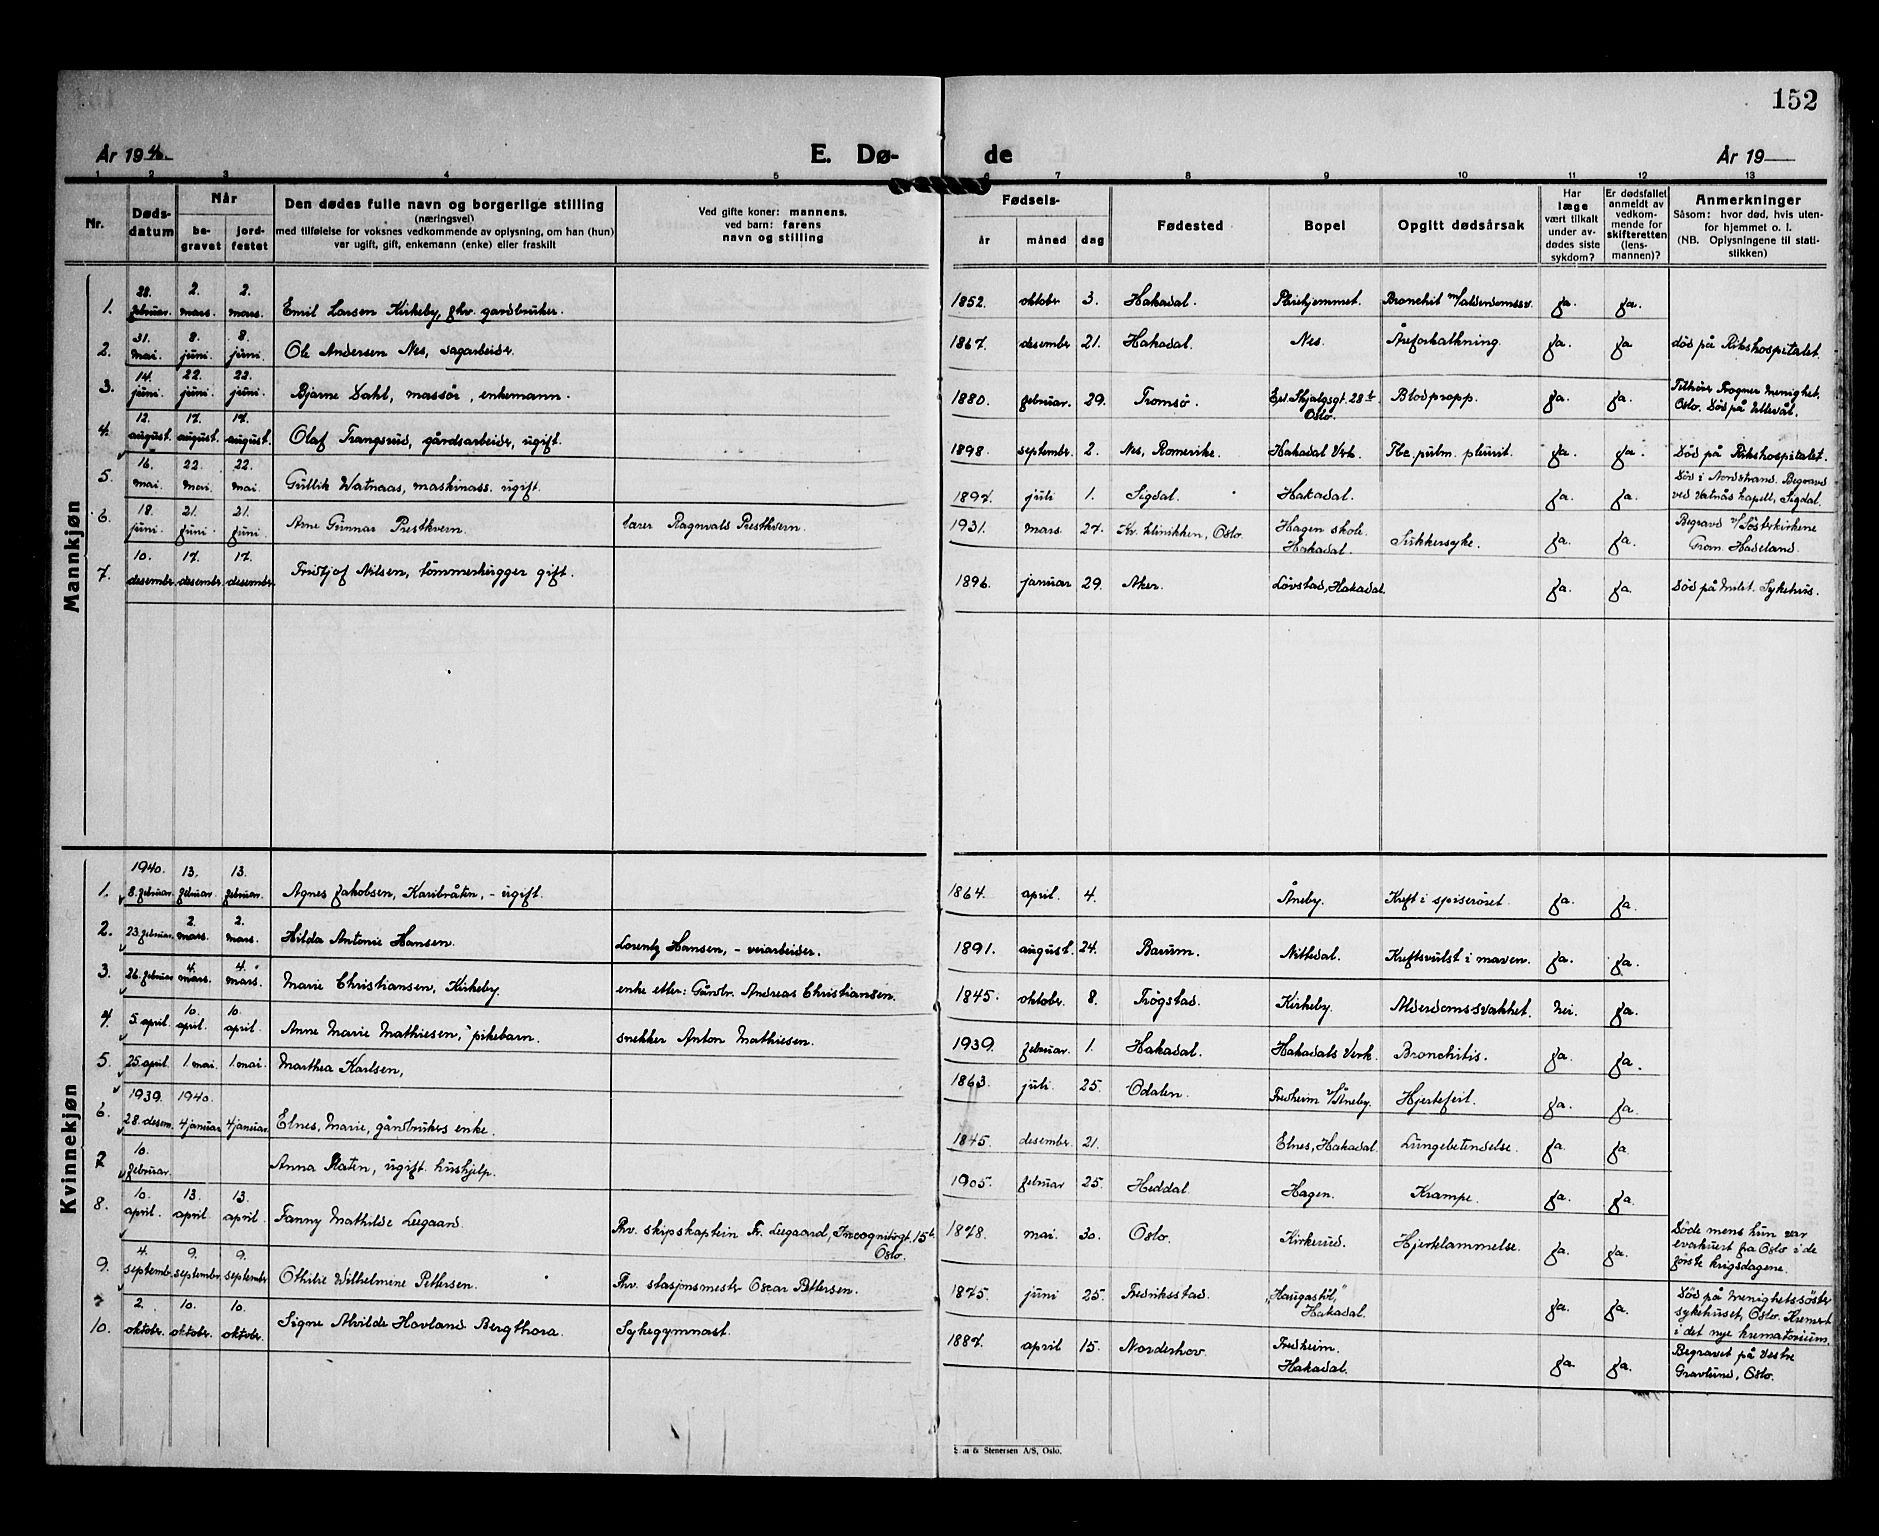 152
År 1940 E. Dø- de År 19
1 2 3 4 5 6 7 8 9 10 11 12 13
Nr. Døds-datum Når be-gravet jord-festet Den dødes fulle navn og borgerlige stilling (næringsvei) med tilføielse for voksnes vedkommende av oplysning, om han (hun) var ugift, gift, enkemann (enke) eller fraskilt Ved gifte koner: mannens, ved barn: farens navn og stilling Fødsels- år måned dag Fødested Bopel Opgitt dødsårsak Har læge vært tilkalt under av-dødes siste sykdom? Er dødsfallet anmeldt av vedkom-mende for skifteretten (lens-mannen)? Anmerkninger Såsom: hvor død, hvis uten-for hjemmet o. l. (NB. Oplysningene til stati-stikken)
Mannkjøn
1. 28. februar. 2. mars. 2. mars. Emil Larsen Kirkeby, fhv. gardbruker. 1852. oktober 3. Hakadal. Pleiehjemmet. Bronchit m/alderdomssv. ja. ja.
2. 31. mai. 8. juni. 8. juni. Ole Andersen Nes, sagarbeider. 1867. desembr 21. Hakadal. Nes. Åreforkalkning. ja. ja død på Rikshospitalet.
3. 14. juni. 22. juni. 22. juni. Bjarne Dahl, massør, enkemann. 1880. februar. 29. Tromsø. Erl. Skjalgsgt. 28 Oslo. Blodpropp. ja. ja. Tilhører Frogner Menighet. Oslo. Død på Ullevål.
4. 12. august. 17. august. 17. august. Olaf Trangsrud, gårdsarbeider, ugift. 1898. septembr. 2. Nes, Romerike. Hakadal Verk. Tbc. pulm. pleurit. ja. ja. Død på Rikshospitalet.
5. 16. mai. 22. mai. 22. mai. Gullik Watnaas, maskinass. ugift. 1897. juli 1. Sigdal. Hakadal. ja. ja. Død i Nordstrand. Begravd ved Vatnås kapell, Sigdal.
6. 18. juni. 21. juni 21. juni. Arne Gunnar Prestkvern. lærer Ragnvald Prestkvern. 1931. mars. 27. Kv. klinikken, Oslo. Hagen skole. Hakadal. Sukkersyke. ja. ja. Begravd v/Søsterkirkene Gran. Hadeland.
7. 10. desembr. 17. desembr. 17. desembr. Fridtjof Nilsen, tømmerhugger gift. 1896. januar 29. Aker. Løvstad, Hakadal. ja. ja. Død på Sykehus.
Kvinnekjøn
1. 1940. 8. februar. 13. februar 13. februar. Agnes Jakobsen, Karibråten, - ugift. 1864. april. 4. Åneby. Kreft i spiserøret. ja. ja.
2. 23. februar 2. mars. 2. mars. Hilda Antonie Hansen. Lorentz Hansen, - veiarbeider. 1891. august. 24. Bærum. Nittedal. Kreftsvulst i maven. ja. ja.
3. 26. februar 4. mars. 4. mars. Marie Christiansen, Kirkeby. enke etter: Gårdbr. Andreas Christiansen. 1845. oktobr. 8. Trøgstad. Kirkeby. Alderdomssvakhet. Nei. ja.
4. 5. april. 10. april. 10. april. Anne Marie Mathiesen, pikebarn. snekker Anton Mathiesen. 1939. februar. 1. Hakadal. Hakadals Verk. Bronchitis. ja. ja.
5. 25 april. 1. mai. 1. mai. Marthea Karlsen, 1863. juli. 25. Odalen. Fredheim v/Åneby. Hjertefeil. ja. ja.
6. 1939. 28. desem. 1940. 4 januar. 4 januar. Elnes, Marie, gårdbrukers enke. 1845. desembr. 21. Elnes, Hakadal. Lungebetendelse. ja. ja.
7 10. februar. Anna Platen, ugift hushjelp. 1905. februar 25. Heddal. Hagen. Krampe. ja. ja.
8. 10. april. 13. april. 13. april. Fanny Mathilde Leegaard. Fhv. skipskaptein Fr. Leegaard, Incognitogt. 15 Oslo. 1878. mai. 30. Oslo. Kirkerud. Hjertelammelse. ja. ja. Døde mens hun var evakuert fra Oslo i de første krigsdagene.
9. 4. septembr. 9. septembr. 9. septembr. Othilie Wilhelmine Pettersen. Fhv. stasjonsmester Oscar Pettersen. 1875. juni 25. Fredriksstad. „Haugastøl,” Hakadal. ja. ja. Død på Menighetssøster sykehuset, Oslo. Kremert i det nye krematorium.
10. 2. oktobr. 10. oktobr. 10. oktobr. Signe Alvilde Hovland Bergthora. Sykegymnast. 1887. april 15. Norderhov. Fredheim. Hakadal. ja. ja. Begravet på Vestre Gravlund, Oslo.
& Stenersen A/S, Oslo.